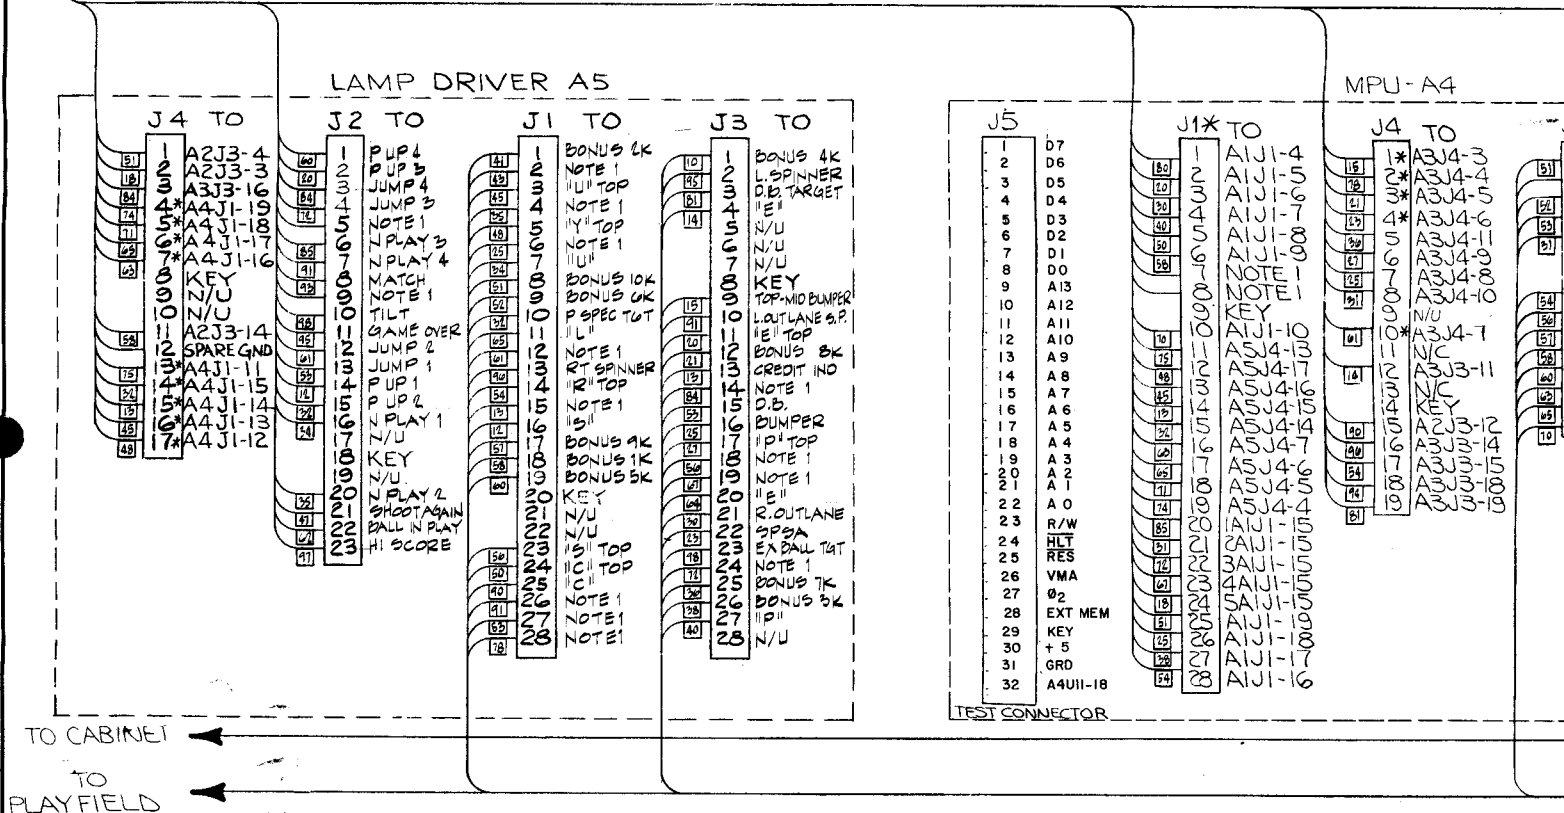 LAMP DRIVER A5
J4 TO
1 A2J3-4
2 A2J3-3
3 A3J3-16
4* A4J1-19
5* A4J1-18
6* A4J1-17
7* A4J1-16
8 KEY
9 N/U
10 N/U
11 A2J3-14
12 SPARE GND
13* A4J1-11
14* A4J1-15
15* A4J1-14
16* A4J1-13
17* A4J1-12
J2 TO
1 P UP 4
2 P UP 3
3 JUMP 4
4 JUMP 3
5 NOTE 1
6 N PLAY 3
7 N PLAY 4
8 MATCH
9 NOTE 1
10 TILT
11 GAME OVER
12 JUMP 2
13 JUMP 1
14 P UP 1
15 P UP 2
16 N PLAY 1
17 N/U
18 KEY
19 N/U
20 N PLAY 2
21 SHOOT AGAIN
22 BALL IN PLAY
23 HI SCORE
J1 TO
1 BONUS 2K
2 NOTE 1
3 "U" TOP
4 NOTE 1
5 "Y" TOP
6 NOTE 1
7 "U"
8 BONUS 10K
9 BONUS 6K
10 P SPEC TGT
11 "L"
12 NOTE 1
13 RT SPINNER
14 "R" TOP
15 NOTE 1
16 "S"
17 BONUS 9K
18 BONUS 1K
19 BONUS 5K
20 KEY
21 N/U
22 N/U
23 "S" TOP
24 "C" TOP
25 "C"
26 NOTE 1
27 NOTE 1
28 NOTE 1
J3 TO
1 BONUS 4K
2 L. SPINNER
3 D.B. TARGET
4 "E"
5 N/U
6 N/U
7 N/U
8 KEY
9 TOP-MID BUMPER
10 L. OUTLANE S.P.
11 "E" TOP
12 BONUS 8K
13 CREDIT IND
14 NOTE 1
15 D.B.
16 BUMPER
17 "P" TOP
18 NOTE 1
19 NOTE 1
20 "E"
21 R. OUTLANE
22 SPSA
23 EX BALL TGT
24 NOTE 1
25 BONUS 7K
26 BONUS 3K
27 "P"
28 N/U
MPU-A4
J5
1 D7
2 D6
3 D5
4 D4
5 D3
6 D2
7 D1
8 D0
9 A13
10 A12
11 A11
12 A10
13 A9
14 A8
15 A7
16 A6
17 A5
18 A4
19 A3
20 A2
21 A1
22 A0
23 R/W
24 HLT
25 RES
26 VMA
27 Ø2
28 EXT MEM
29 KEY
30 + 5
31 GRD
32 A4U11-18
TEST CONNECTOR
J1* TO
1 A1J1-4
2 A1J1-5
3 A1J1-6
4 A1J1-7
5 A1J1-8
6 A1J1-9
7 NOTE 1
8 NOTE 1
9 KEY
10 A1J1-10
11 A5J4-13
12 A5J4-17
13 A5J4-16
14 A5J4-15
15 A5J4-14
16 A5J4-7
17 A5J4-6
18 A5J4-5
19 A5J4-4
20 1A1J1-15
21 2A1J1-15
22 3A1J1-15
23 4A1J1-15
24 5A1J1-15
25 A1J1-19
26 A1J1-18
27 A1J1-17
28 A1J1-16
J4 TO
1* A3J4-3
2* A3J4-4
3* A3J4-5
4* A3J4-6
5 A3J4-11
6 A3J4-9
7 A3J4-8
8 A3J4-10
9 N/U
10* A3J4-7
11 N/C
12 A3J3-11
13 N/C
14 KEY
15 A2J3-12
16 A3J3-14
17 A3J3-15
18 A3J3-18
19 A3J3-19
TO CABINET
TO
PLAYFIELD